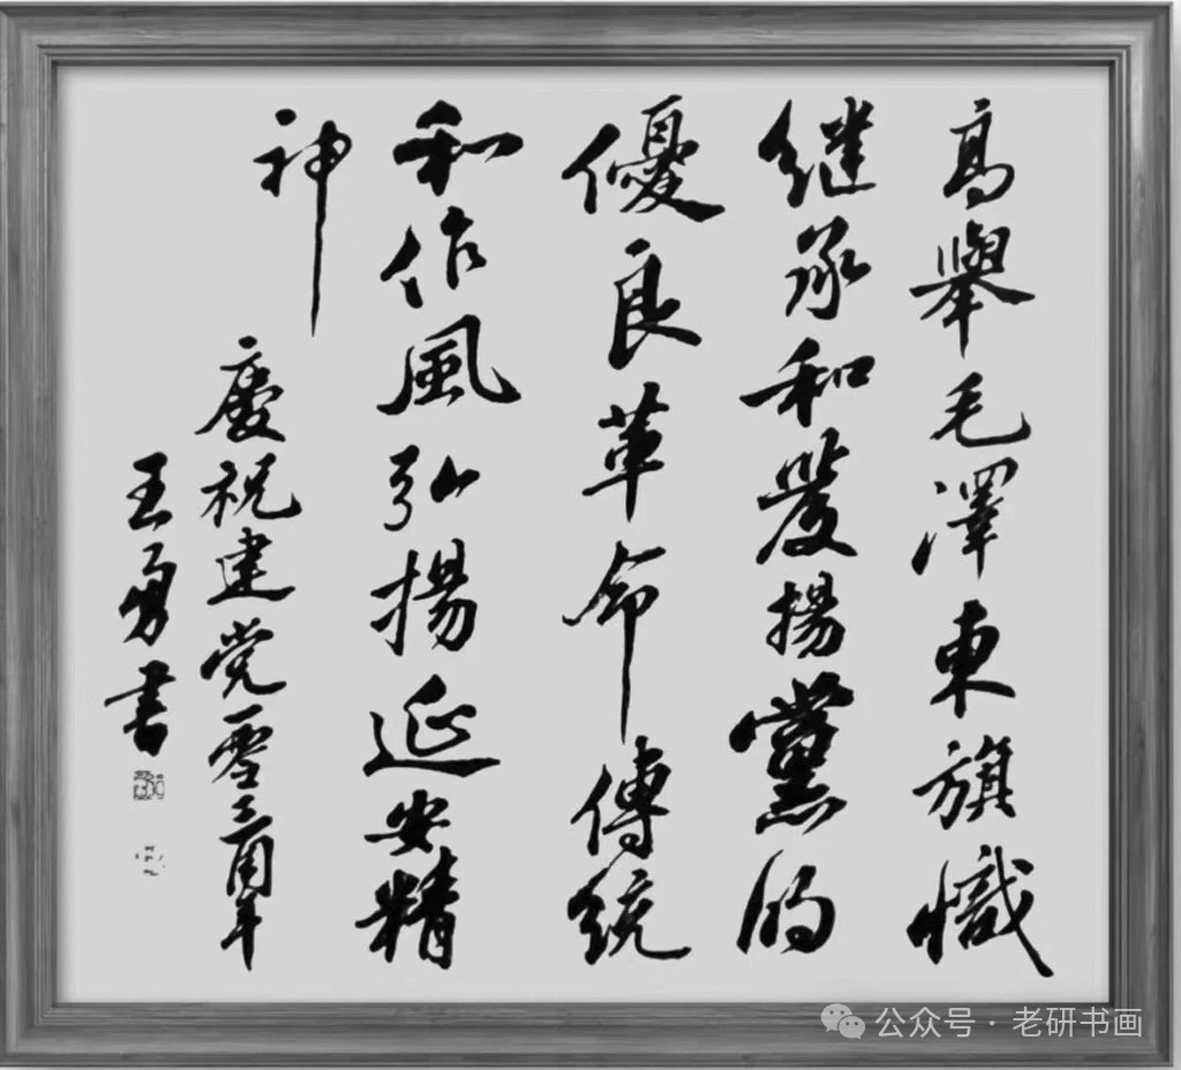 高舉毛澤東旗幟
继承和發揚黨的
優良革命傳統
和作風弘揚延安精
神
慶祝建党一零三周年
王勇書
公众号 · 老研书画